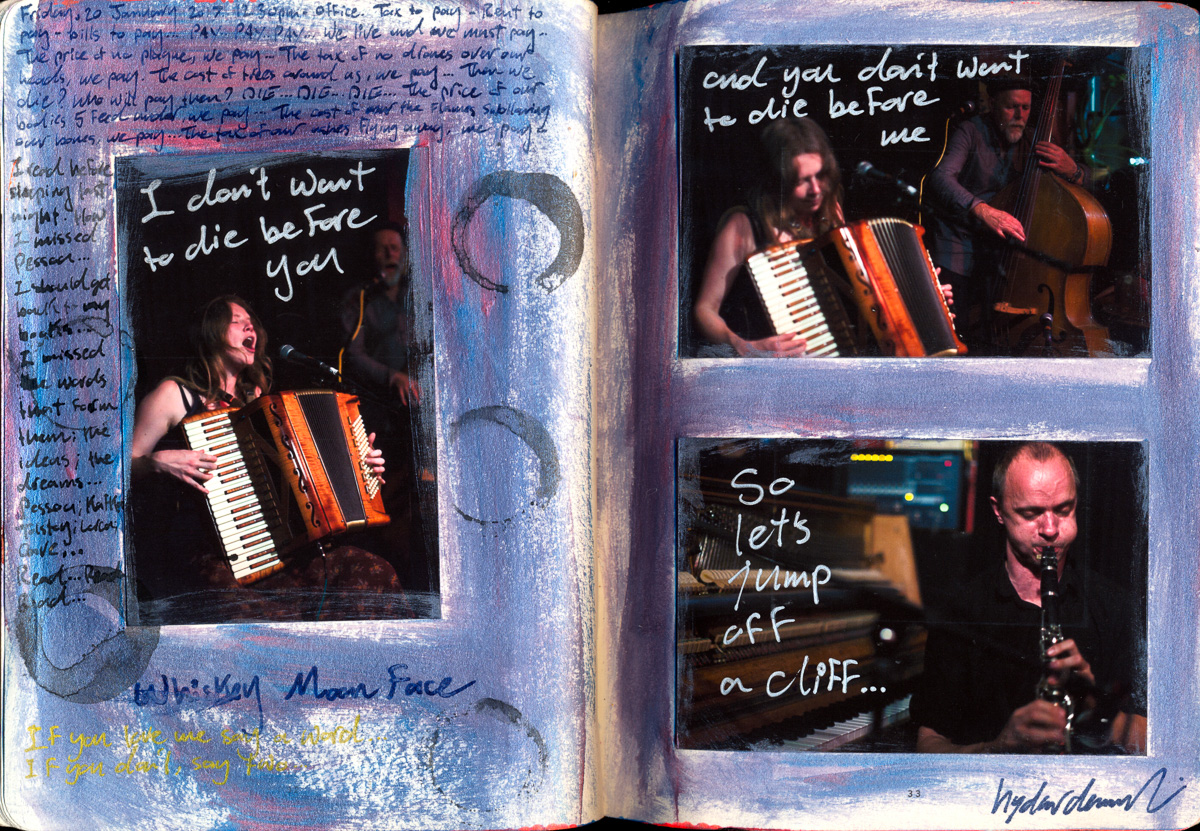 Friday, 20 January 2017. 12:30pm. Office. Tax to pay - Rent to
pay - bills to pay... PAY.. PAY. PAY... We live and we must pay..
The price of no plague, we pay... The tax of no drones over our
heads, we pay. The cost of trees around us, we pay... Then we
die? Who will pay then? DIE... DIE... DIE... The price of our
bodies 5 feed under we pay... The cost of the flames
our bones, we pay... The tax of our ashes flying away, we pay -
I read before
sleeping last
night. How
I missed
Pessoa...
I should get
back to my
books...
I missed
the words
that form
them; the
ideas, the
dreams...
Pessoa, Kafka
Lorca,
Cave,...
Read... Read
Read...
I don't want
to die before
you
Whiskey Moon Face
If you love me say a word...
If you don't, say two...
and you don't want
to die before
me
So
let's
jump
off
a cliff...
33